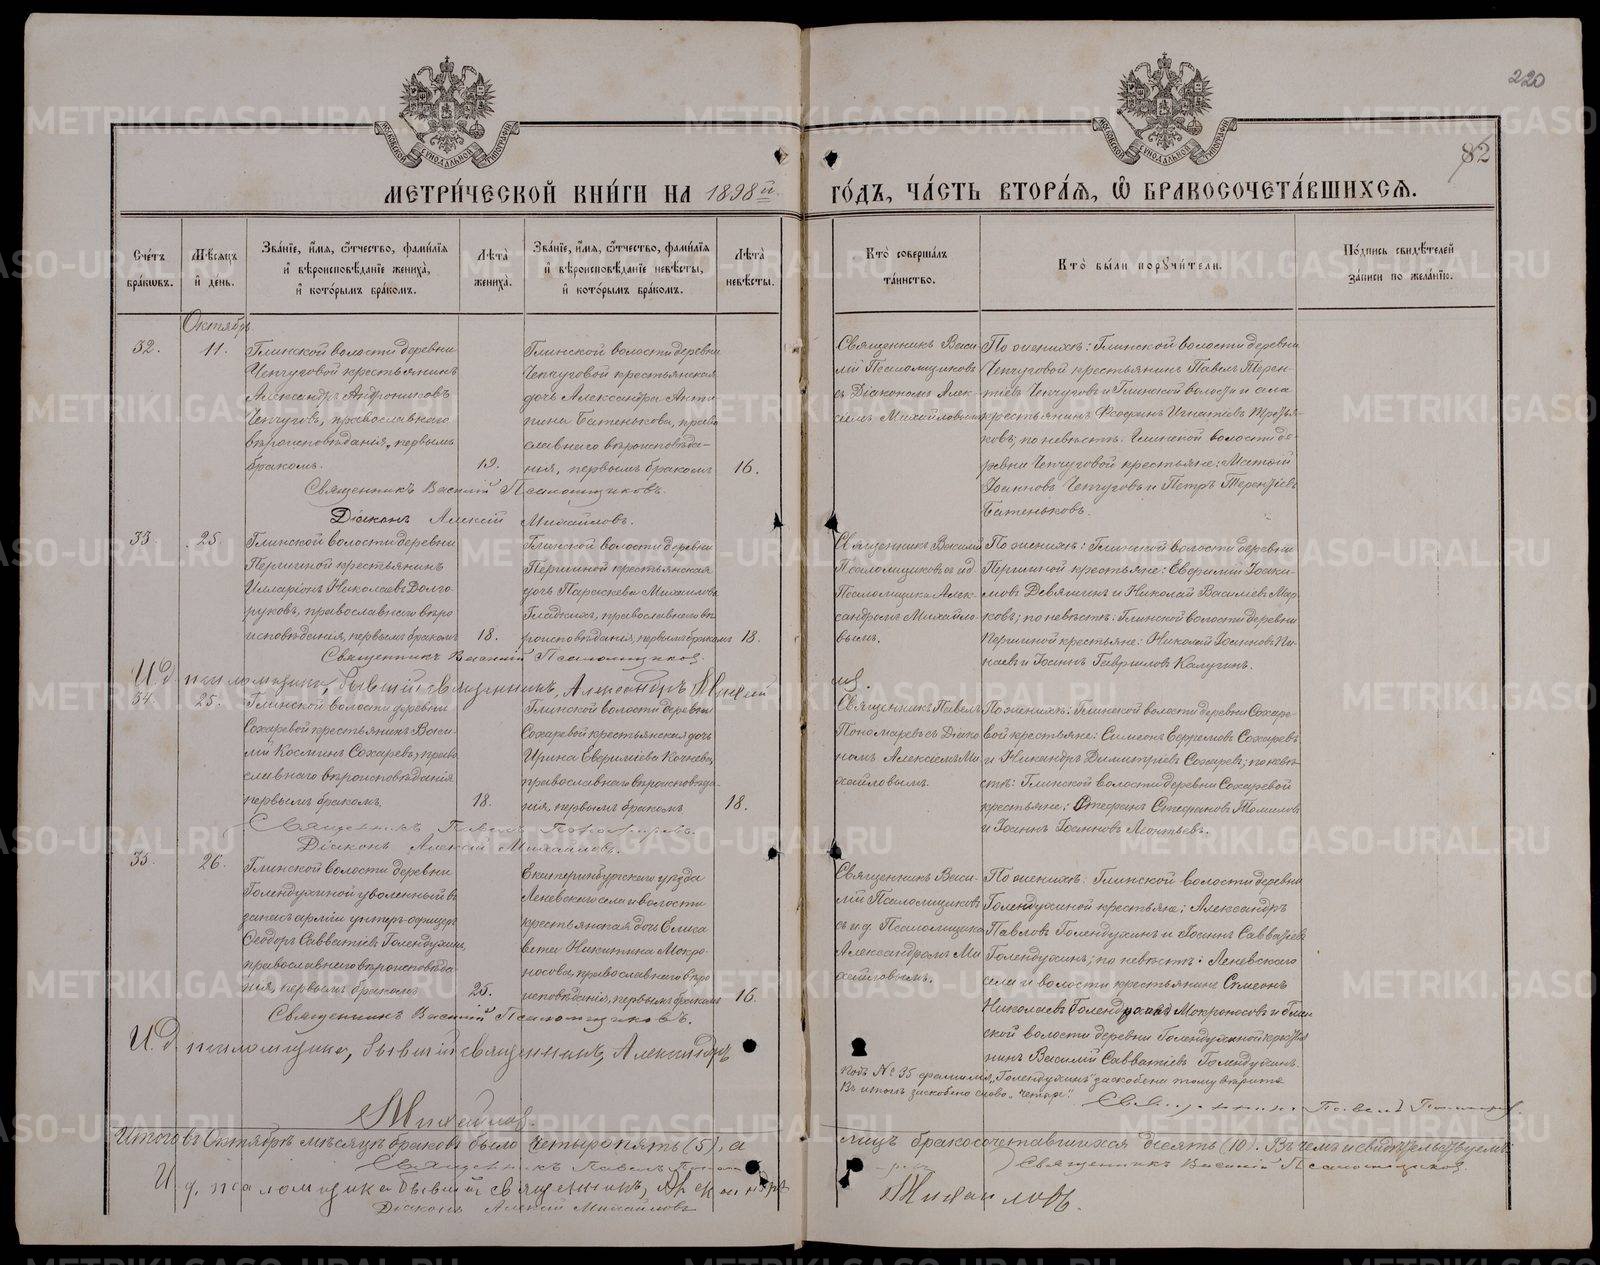 220
82
МЕТРИ́ЧЕСКОЙ КНИ́ГИ НА 1898й ГО́ДЪ, ЧА́СТЬ ВТОРА́Я, Ѿ БРАКОСОЧЕТА́ВШИХСЯ.
Сче́тъ бра́ковъ.
Мѣ́сяцъ и́ день.
Зва́нїе, и́мя, ѻ҆́тчество, фами́лїя
и҆ вѣроисповѣ́данїе жениха̀,
и҆ кото́рымъ бра́комъ.
Лѣта̀ жениха̀.
Зва́нїе, и́мя, ѻ҆́тчество, фами́лїя
и҆ вѣроисповѣ́данїе невѣ́сты,
и҆ кото́рымъ бра́комъ.
Лѣта̀ невѣ́сты.
Кто̀ соверша́лъ та́инство.
Кто̀ бы́ли порꙋчи́тели.
По́дпись свидѣ́телей за́писи по жела́нїю.
Октябрь
32.
11.
Глинской волости деревни
Чепчуговой крестьянинъ
Александръ Андрониковъ
Чепчуговъ, православнаго
вѣроисповѣданія, первымъ
бракомъ.
19.
Глинской волости деревни
Чепчуговой крестьянская
дочь Александра Анти
пина Батенькова, право
славнаго вѣроисповѣда-
нія, первымъ бракомъ
16.
Священникъ Васи-
лій Псаломщиковъ
съ Діакономъ Алек-
сѣемъ Михайловымъ
По женихѣ: Глинской волости деревни
Чепчуговой крестьянинъ Павелъ Терен-
тіевъ Чепчуговъ и Глинской волости и села
крестьянинъ Игнатіевъ
ковъ; по невѣстѣ: Глинской волости де
ревни Чепчуговой крестьяне: Матѳій
Іоанновъ Чепчуговъ и Петръ Терентіевъ
Батеньковъ.
Священникъ Василій Псаломщиковъ.
Діаконъ Алексій Михайловъ.
33.
25.
Глинской волости деревни
Першиной крестьянинъ
Илларіонъ Николаевъ Долго
руковъ, православнаго вѣро
исповѣданія, первымъ бракомъ
18.
Глинской волости деревни
Першиной крестьянская
дочь Параскева Михаилова
Гладкихъ, православнаго вѣ
роисповѣданія, первымъ бракомъ
18.
Священникъ Василій
Псаломщиковъ съ и.д.
Псаломщика Алек-
сандромъ Михайло-
вымъ.
По женихѣ: Глинской волости деревни
Першиной крестьяне: Евѳимій Іоаки-
мовъ Девяшинъ и Николай Василіевъ Мар
ковъ; по невѣстѣ: Глинской волости деревни
Першиной крестьяне: Николай Іоанновъ Пи
наевъ и Іоаннъ Гавриловъ Калугинъ.
Священникъ Василій Псаломщиковъ.
И.д. псаломщика, бывшій священникъ, Александръ Михай
ловъ.
34.
25.
Глинской волости деревни
Сохаревой крестьянинъ Васи-
лій Косминъ Сохаревъ, право
славнаго вѣроисповѣданія
первымъ бракомъ.
18.
Глинской волости деревни
Сохаревой крестьянская дочь
Ирина Евѳиміева Кочнева,
православнаго вѣроисповѣда-
нія, первымъ бракомъ
18.
Священникъ Павелъ
Пономаревъ съ Діако
номъ Алексіемъ Ми
хайловымъ.
По женихѣ: Глинской волости деревни Сохаре-
вой крестьяне: Симеонъ Ефремовъ Сохаревъ
и Никандръ Димитріевъ Сохаревъ; по невѣ-
стѣ: Глинской волости деревни Сохаревой
крестьяне: Стефанъ Стефановъ Томиловъ
и Іоаннъ Іоанновъ Леонтьевъ.
Священникъ Павелъ Пономаревъ.
Діаконъ Алексій Михайловъ.
35.
26.
Глинской волости деревни
Голендухиной уволенный въ
запасъ арміи унтеръ-офицеръ
Ѳеодоръ Савватіевъ Голендухинъ,
православнаго вѣроисповѣда
нія, первымъ бракомъ
25.
Екатеринбургскаго уѣзда
Леневскаго села и волости
крестьянская дочь Елиса
вета Никитина Мокро-
носова, православнаго вѣро
исповѣданія, первымъ бракомъ
16.
Священникъ Васи-
лій Псаломщиковъ
съ и.д. Псаломщика
Александромъ Ми
хайловымъ.
По женихѣ: Глинской волости деревни
Голендухиной крестьяне: Александръ
Павловъ Голендухинъ и Іоаннъ Савватіевъ
Голендухинъ; по невѣстѣ: Леневскаго
села и волости крестьянинъ Симеонъ
Николаевъ Голендухинъ Мокроносовъ и Глин
ской волости деревни Голендухиной крестья
нинъ Василій Савватіевъ Голендухинъ.
Священникъ Василій Псаломщиковъ.
И.д. псаломщика, бывшій священникъ, Александръ
Михайловъ.
Подъ № 35 фамилія „Голендухинъ“ заскоблена тому вѣрить
Въ итогѣ заскоблено слово „четыре“.
Священникъ Павелъ Пономаревъ.
Итого въ Октябрѣ мѣсяцѣ браковъ было четыре пять (5), а
лицъ бракосочетавшихся десять (10). Въ чемъ и свидѣтельствуемъ:
Священникъ Павелъ Понома-
ревъ
Священникъ Василій Псаломщиковъ
И.д. псаломщика бывшій священникъ, Александръ
Михайловъ.
Діаконъ Алексій Михайловъ
METRIKI.GASO-URAL.RU